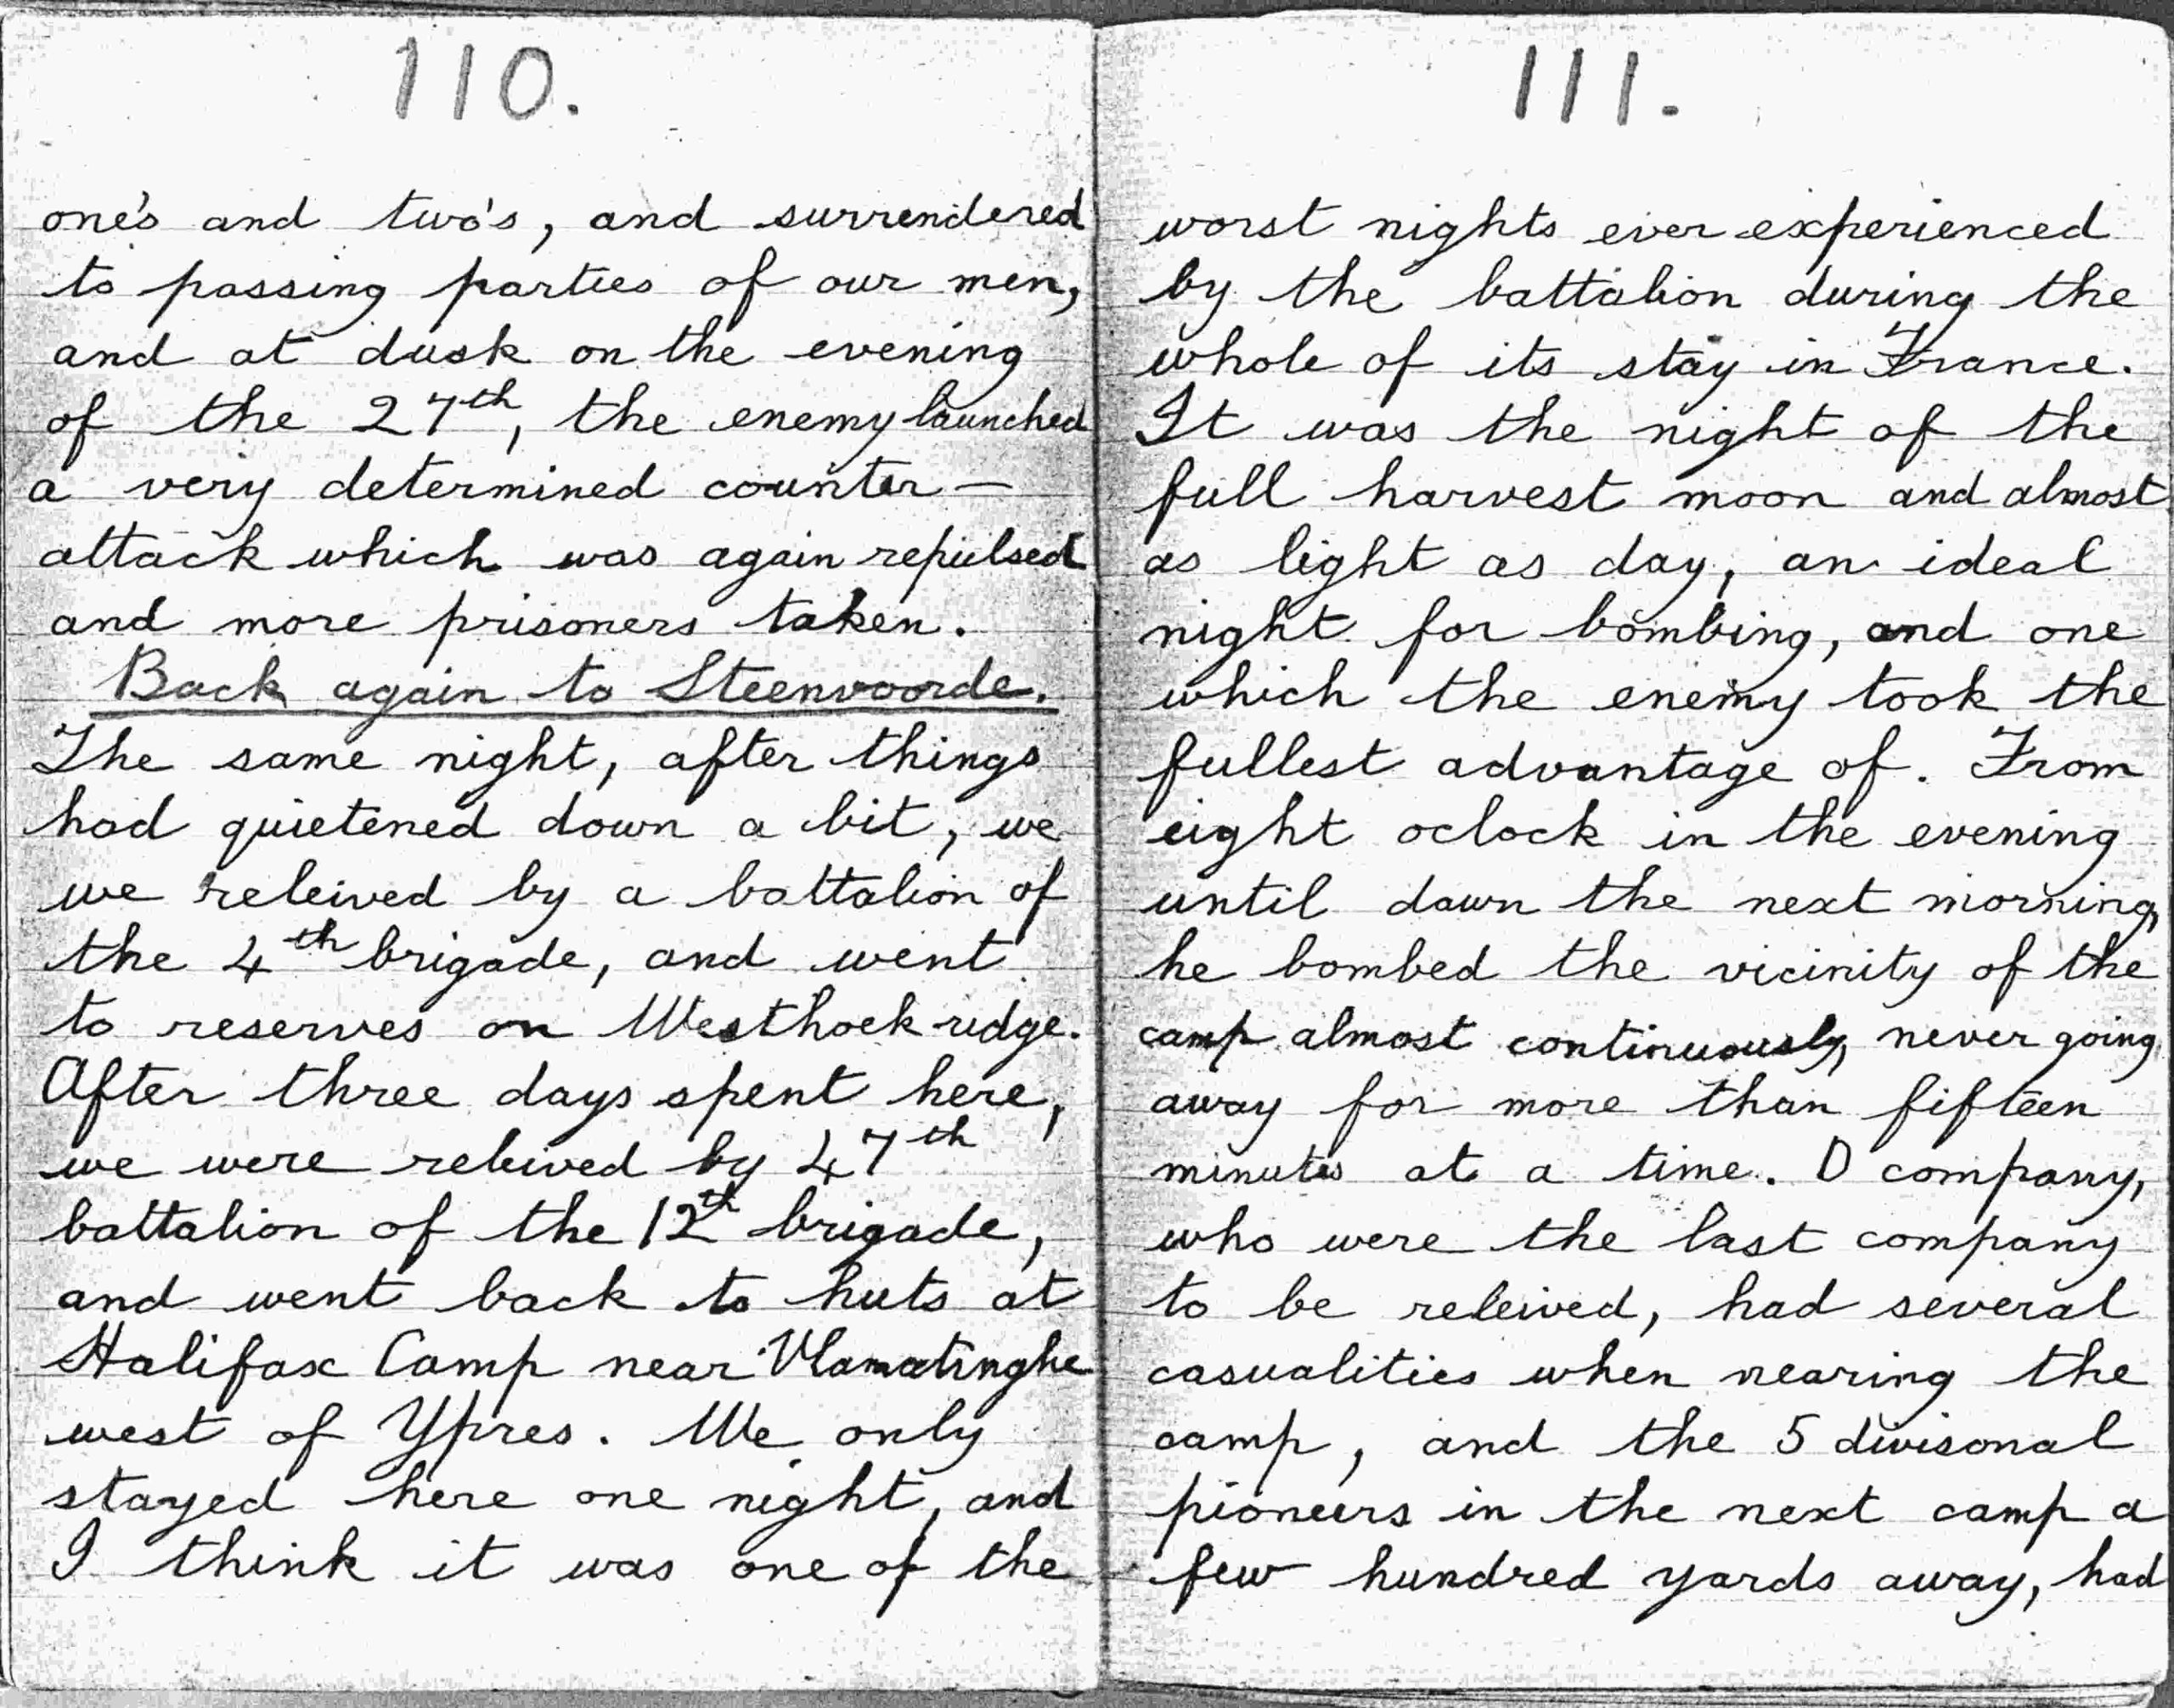 110.
one's and two's, and surrendered
to passing parties of our men,
and at dusk on the evening
of the 27th, the enemy launched
a very determined counter-
attack which was again repulsed
and more prisoners taken.
Back again to Steenvoorde.
The same night, after things
had quietened down a bit, we
we releived by a battalion of
the 4th brigade, and went
to reserves on Westhoek ridge.
After three days spent here,
we were releived by 47th
battalion of the 12th brigade,
and went back to huts at
Halifax Camp near Vlamatinghe
west of Ypres. We only
stayed here one night, and
I think it was one of the
111.
worst nights ever experienced
by the battalion during the
whole of its stay in France.
It was the night of the
full harvest moon and almost
as light as day, an ideal
night for bombing, and one
which the enemy took the
fullest advantage of. From
eight oclock in the evening
until dawn the next morning,
he bombed the vicinity of the
camp almost continuously, never going
away for more than fifteen
minutes at a time. D company,
who were the last company
to be releived, had several
casualities when nearing the
camp, and the 5 divisonal
pioneers in the next camp a
few hundred yards away, had